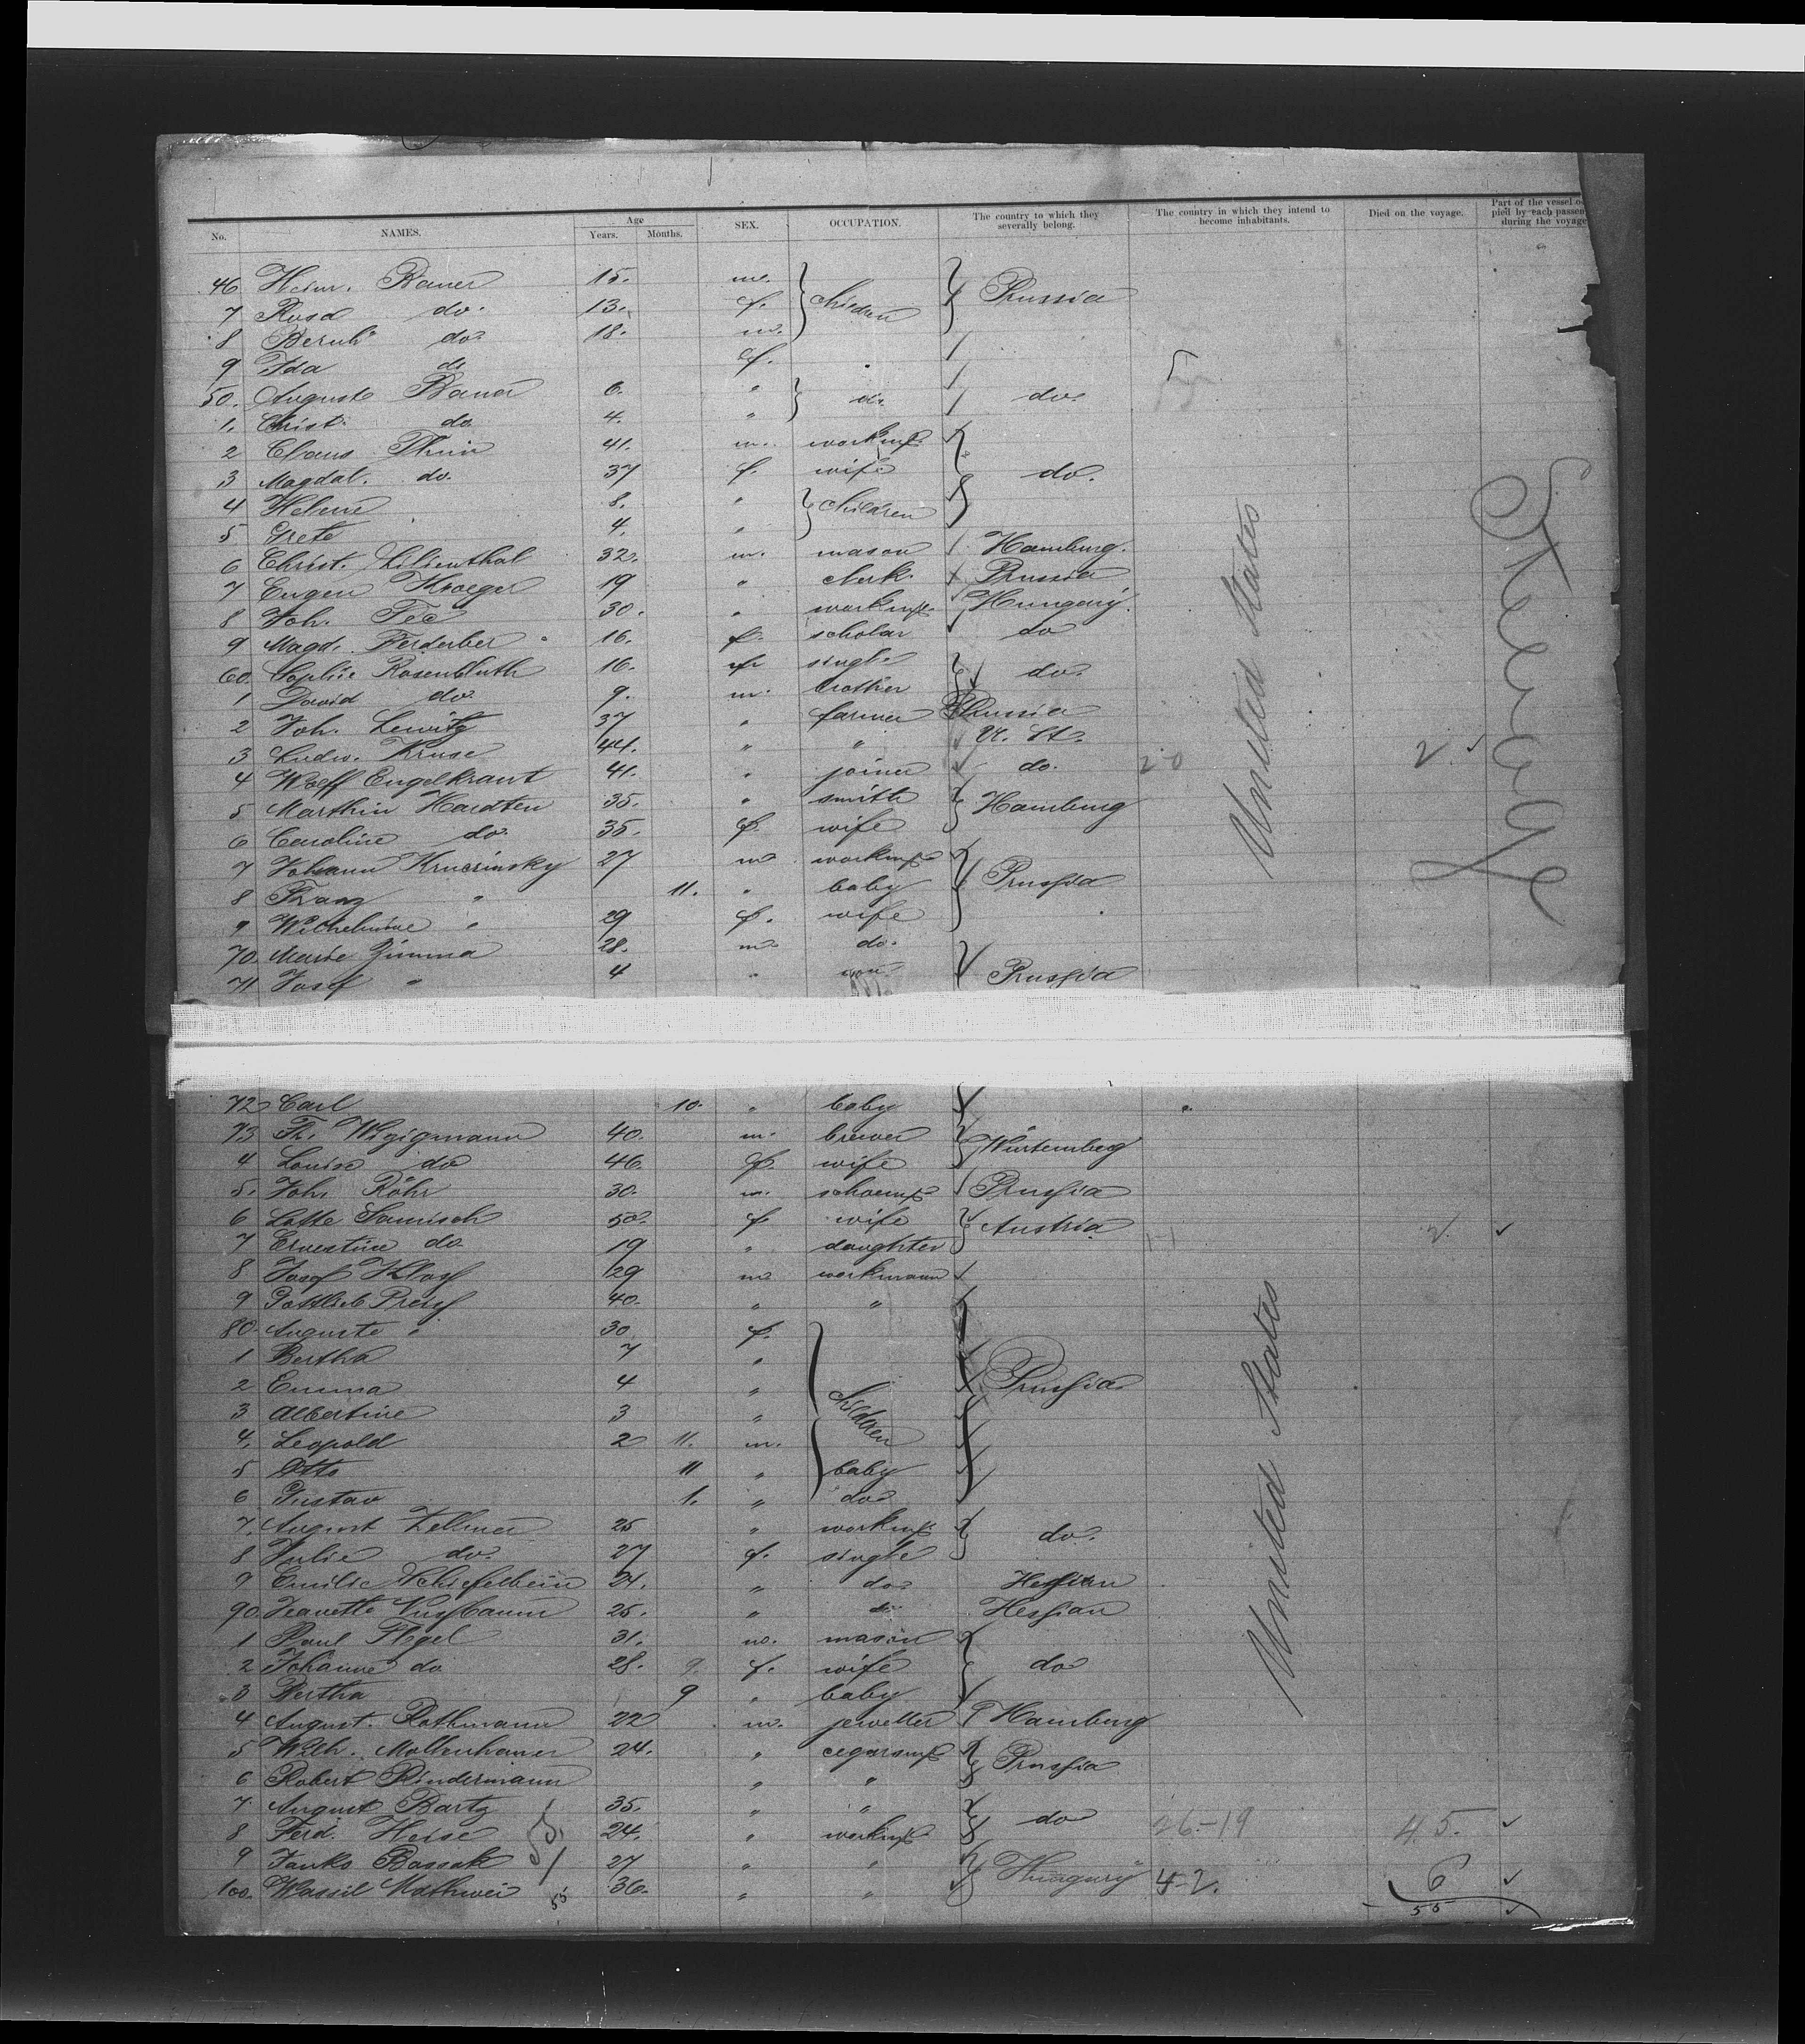 No. NAMES. Age Years. Months. SEX. OCCUPATION. The country to which they severally belong. The country in which they intend to become inhabitants. Died on the voyage. Part of the vessel oc pied by each passen during the voyage
46 Heinr. Bauer 15. m. children Prussia
7 Rosa do. 13. f.
8 Bernh. do. 18. m.
9 Ida do f.
50. Auguste Bauer 6. " do. do.
1. Christ. do. 4. "
2 Claus Thun 41. m. workm.
3 Magdal. do. 37 f. wife do.
4 Helene 8. " children
5 Grete 4. "
6 Christ. Lilienthal 32. m. mason Hamburg.
7 Eugen Kroeger 19 " clerk. Prussia
8 Joh. Fec 30. " workm. Hungary.
9 Magd. Ferderber 16. f. scholar do
60. Sophie Rosenbluth 16. f. single do.
1 David do. 9. m. brother
2 Joh. Lewitz 37 " farmer Prussia
3 Ludw. Kruse 44. " " U. St.
4 Wolff Engelkraut 41. " joiner do. 20 2
5 Marthin Hardten 35. " smith Hamburg
6 Caroline do. 35. f. wife
7 Johann Krucrinsky 27 m workm.
8 Franz " 11. " baby Prussia
9 Wilhelmine " 29 f. wife
70. Marie Zimma 28. m. do.
71 Josef " 4 " son Prussia
United States
Steerage
72 Carl 10. " baby
73 Th. Wigigmann 40. m. brewer Würtemberg
4 Louise do 46. f. wife
5. Joh. Röhr 30. m. schoemk Prussia
6 Lotte Samisch 50. f. wife Austria 2.
7 Ernestine do. 19 " daughter
8 Josef Kloss 29 m workmann
9 Gottlieb Preuss 40. " "
80. Auguste " 30 f.
1 Bertha 7 "
2 Emma 4 " children Prussia
3 Albertine 3 "
4. Leopold 2 11. m.
5 Otto 11 " baby
6 Gustav 1. " do
7. August Zellmer 25 " workm. do.
8 Julie do. 27 f. single
9 Emilie Schiefelbein 24. " do. Hessian
90. Jeanette Nussbaum 25. " do Hessian
1 Paul Flegel 31. m. mason
2 Johanne do 28. 9. f. wife do
3 Bertha 9 " baby
4 August. Rothmann 22 m. jeweller Hamburg
5 Wilh. Mollenhauer 24. " cegarsmk Prussia
6 Robert Rindermann " "
7. August Bartz 35. " "
8 Ferd. Heise 24. " workm. do 26-19 45.
9 Janko Bassak 27 " " Hungary 4-2. 6
100. Wassil Mathwei 55 36. " " 55
United States